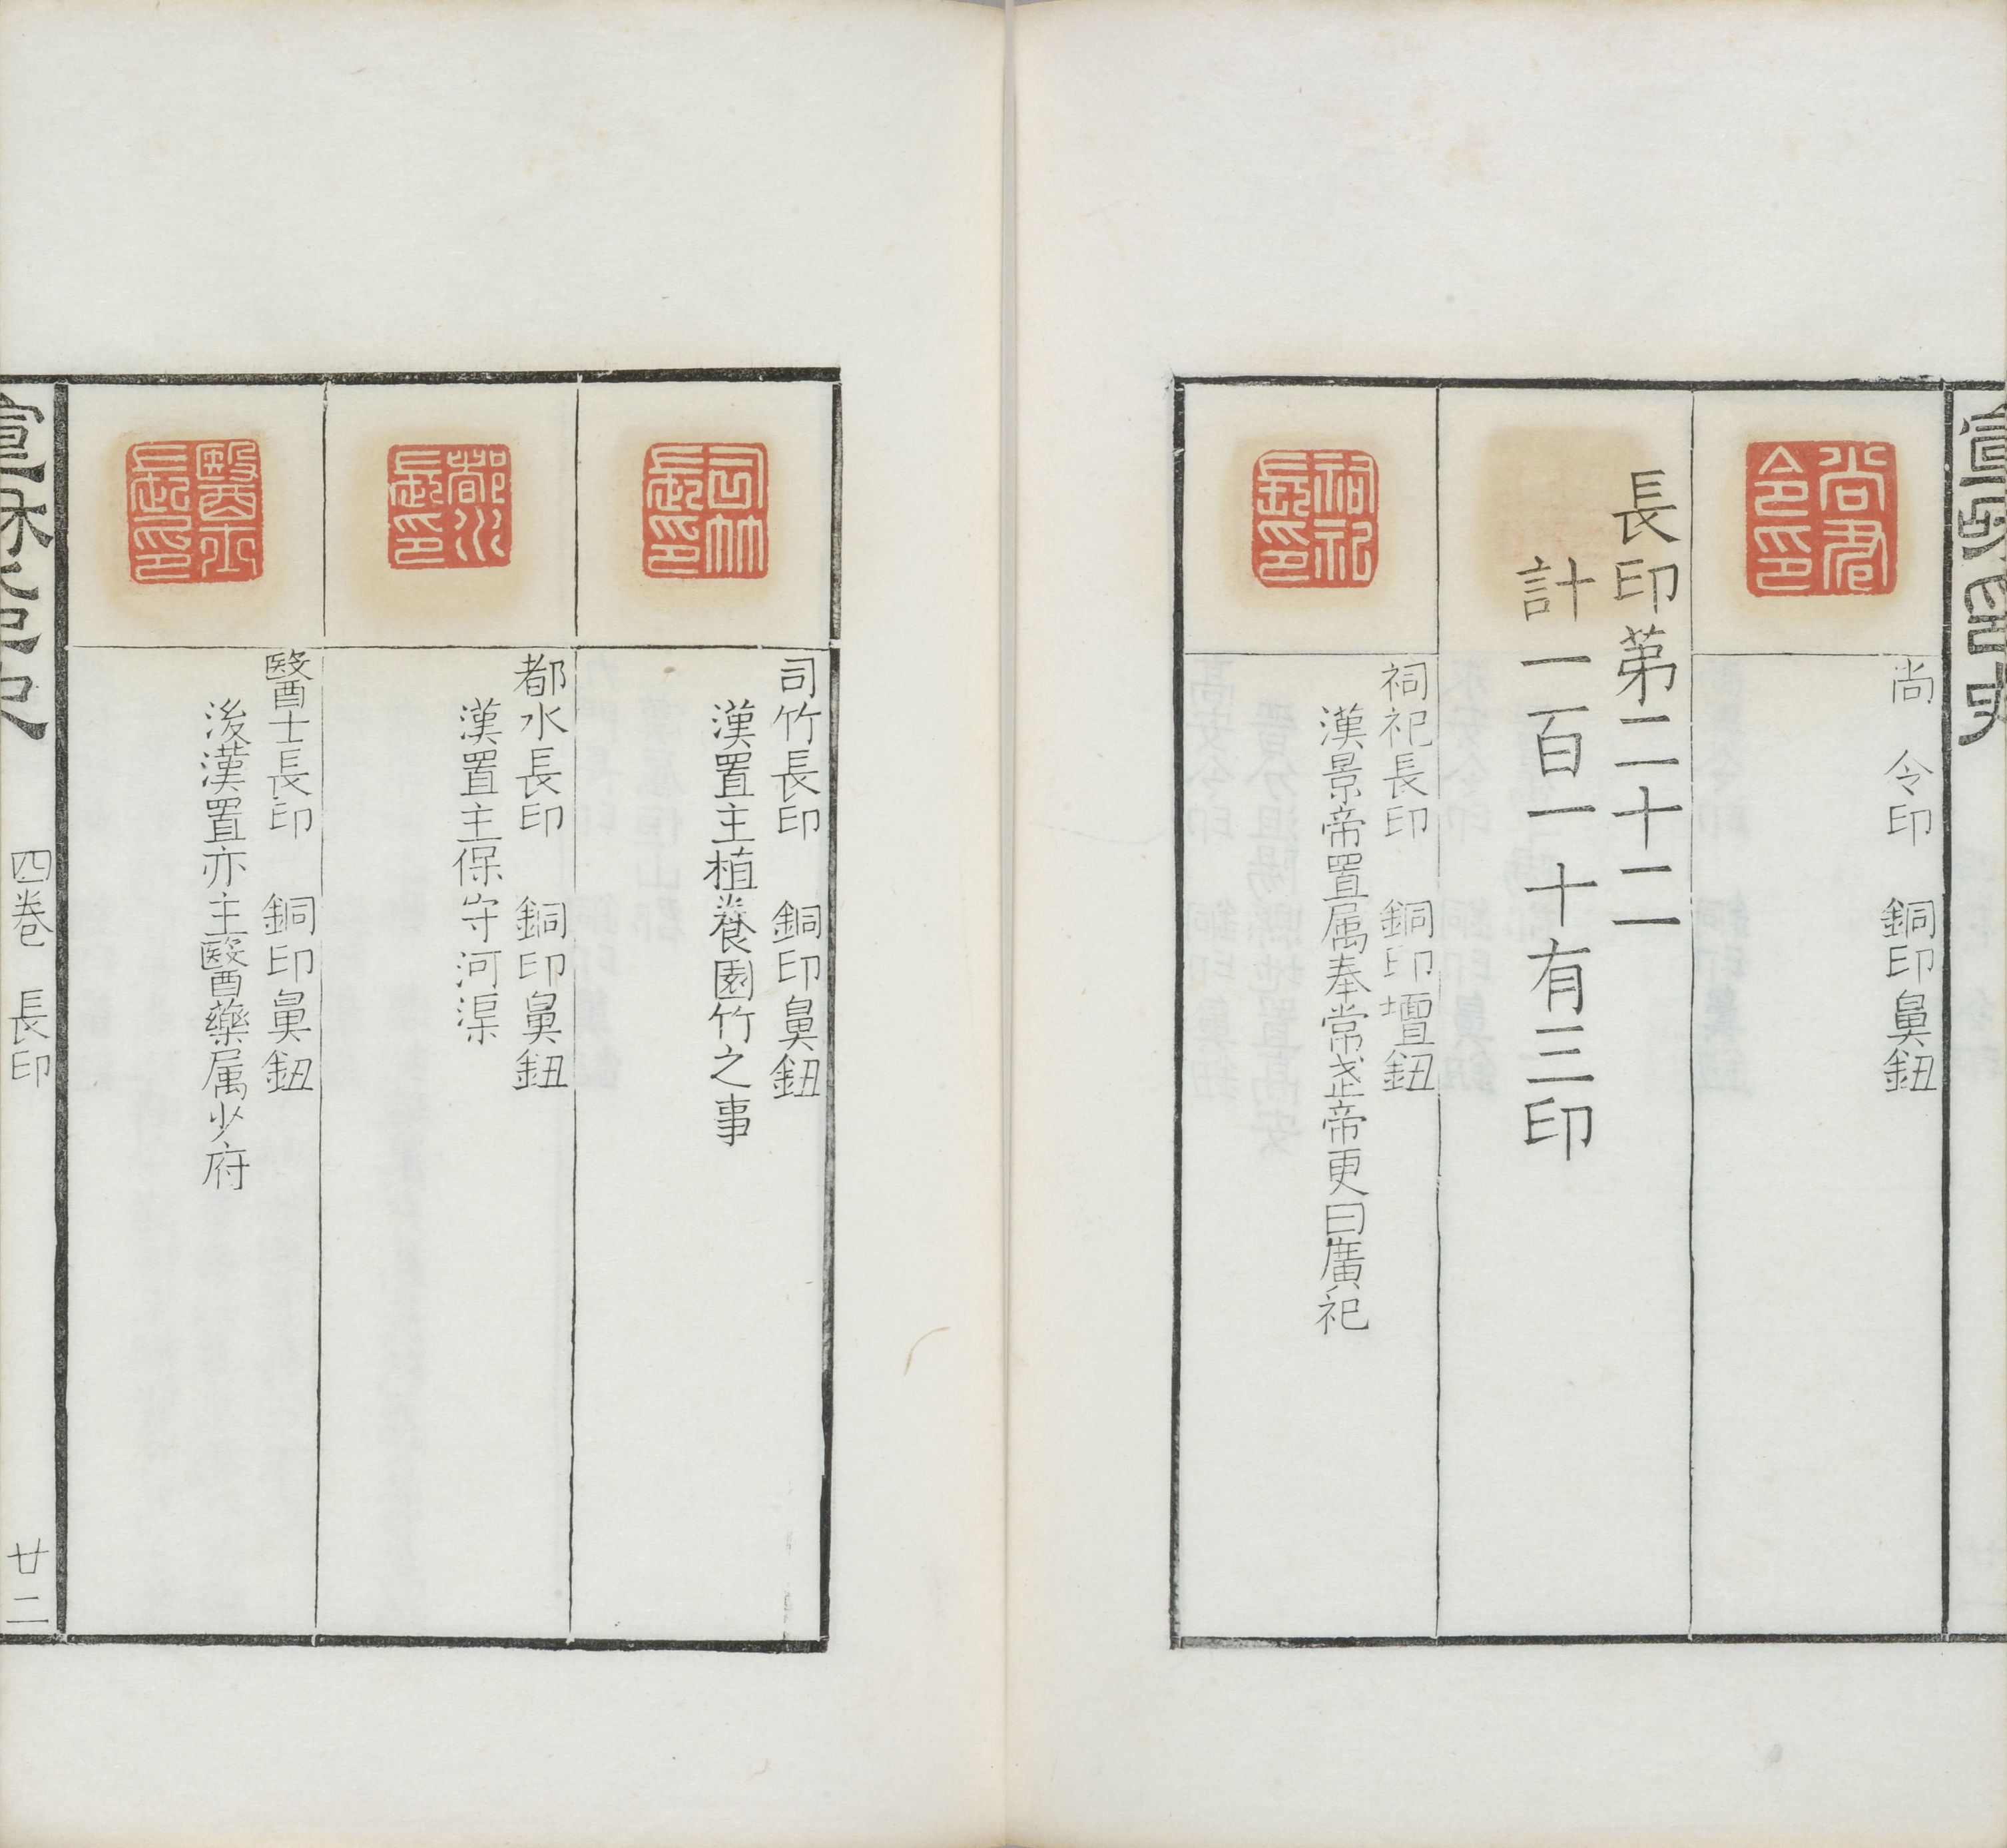 宣和印史
尚
令印
銅印鼻鈕
長印第二十二
計一百一十有三印
祠祀長印
銅印壇鈕
漢景帝置属奉常武帝更曰廣祀
祠祀長印
司竹長印
銅印鼻鈕
漢置主植養園竹之事
司竹長印
都水長印
銅印鼻鈕
漢置主保守河渠
都水長印
醫士長印
銅印鼻鈕
後漢置亦主醫藥属少府
宣和印史
四卷
長印
廿二